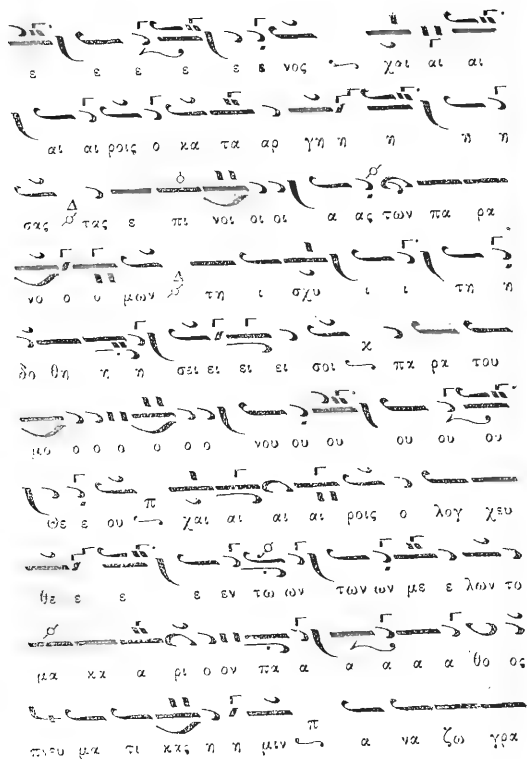 ε ε ε ε ε ε νος χαι αι αι
αι αι ροις ο κα τα αρ γη η η η η
σας τας ε πι νοι οι οι α ας των πα ρα
νο ο ο μων τη ι σχυ ι ι τη η
θη η η σει ει ει ει σοι πα ρα του
ο ο ο ο ο ο νου ου ου ου ου ου
θε ε ου χαι αι αι αι ροις ο λογ χευ
θε ε ε ε εν τω ων των ων με ε λων το
μα κα α ρι ο ον πα α α α α α θο ος
πνευ μα τι κας η η μιν α να ζω γρα